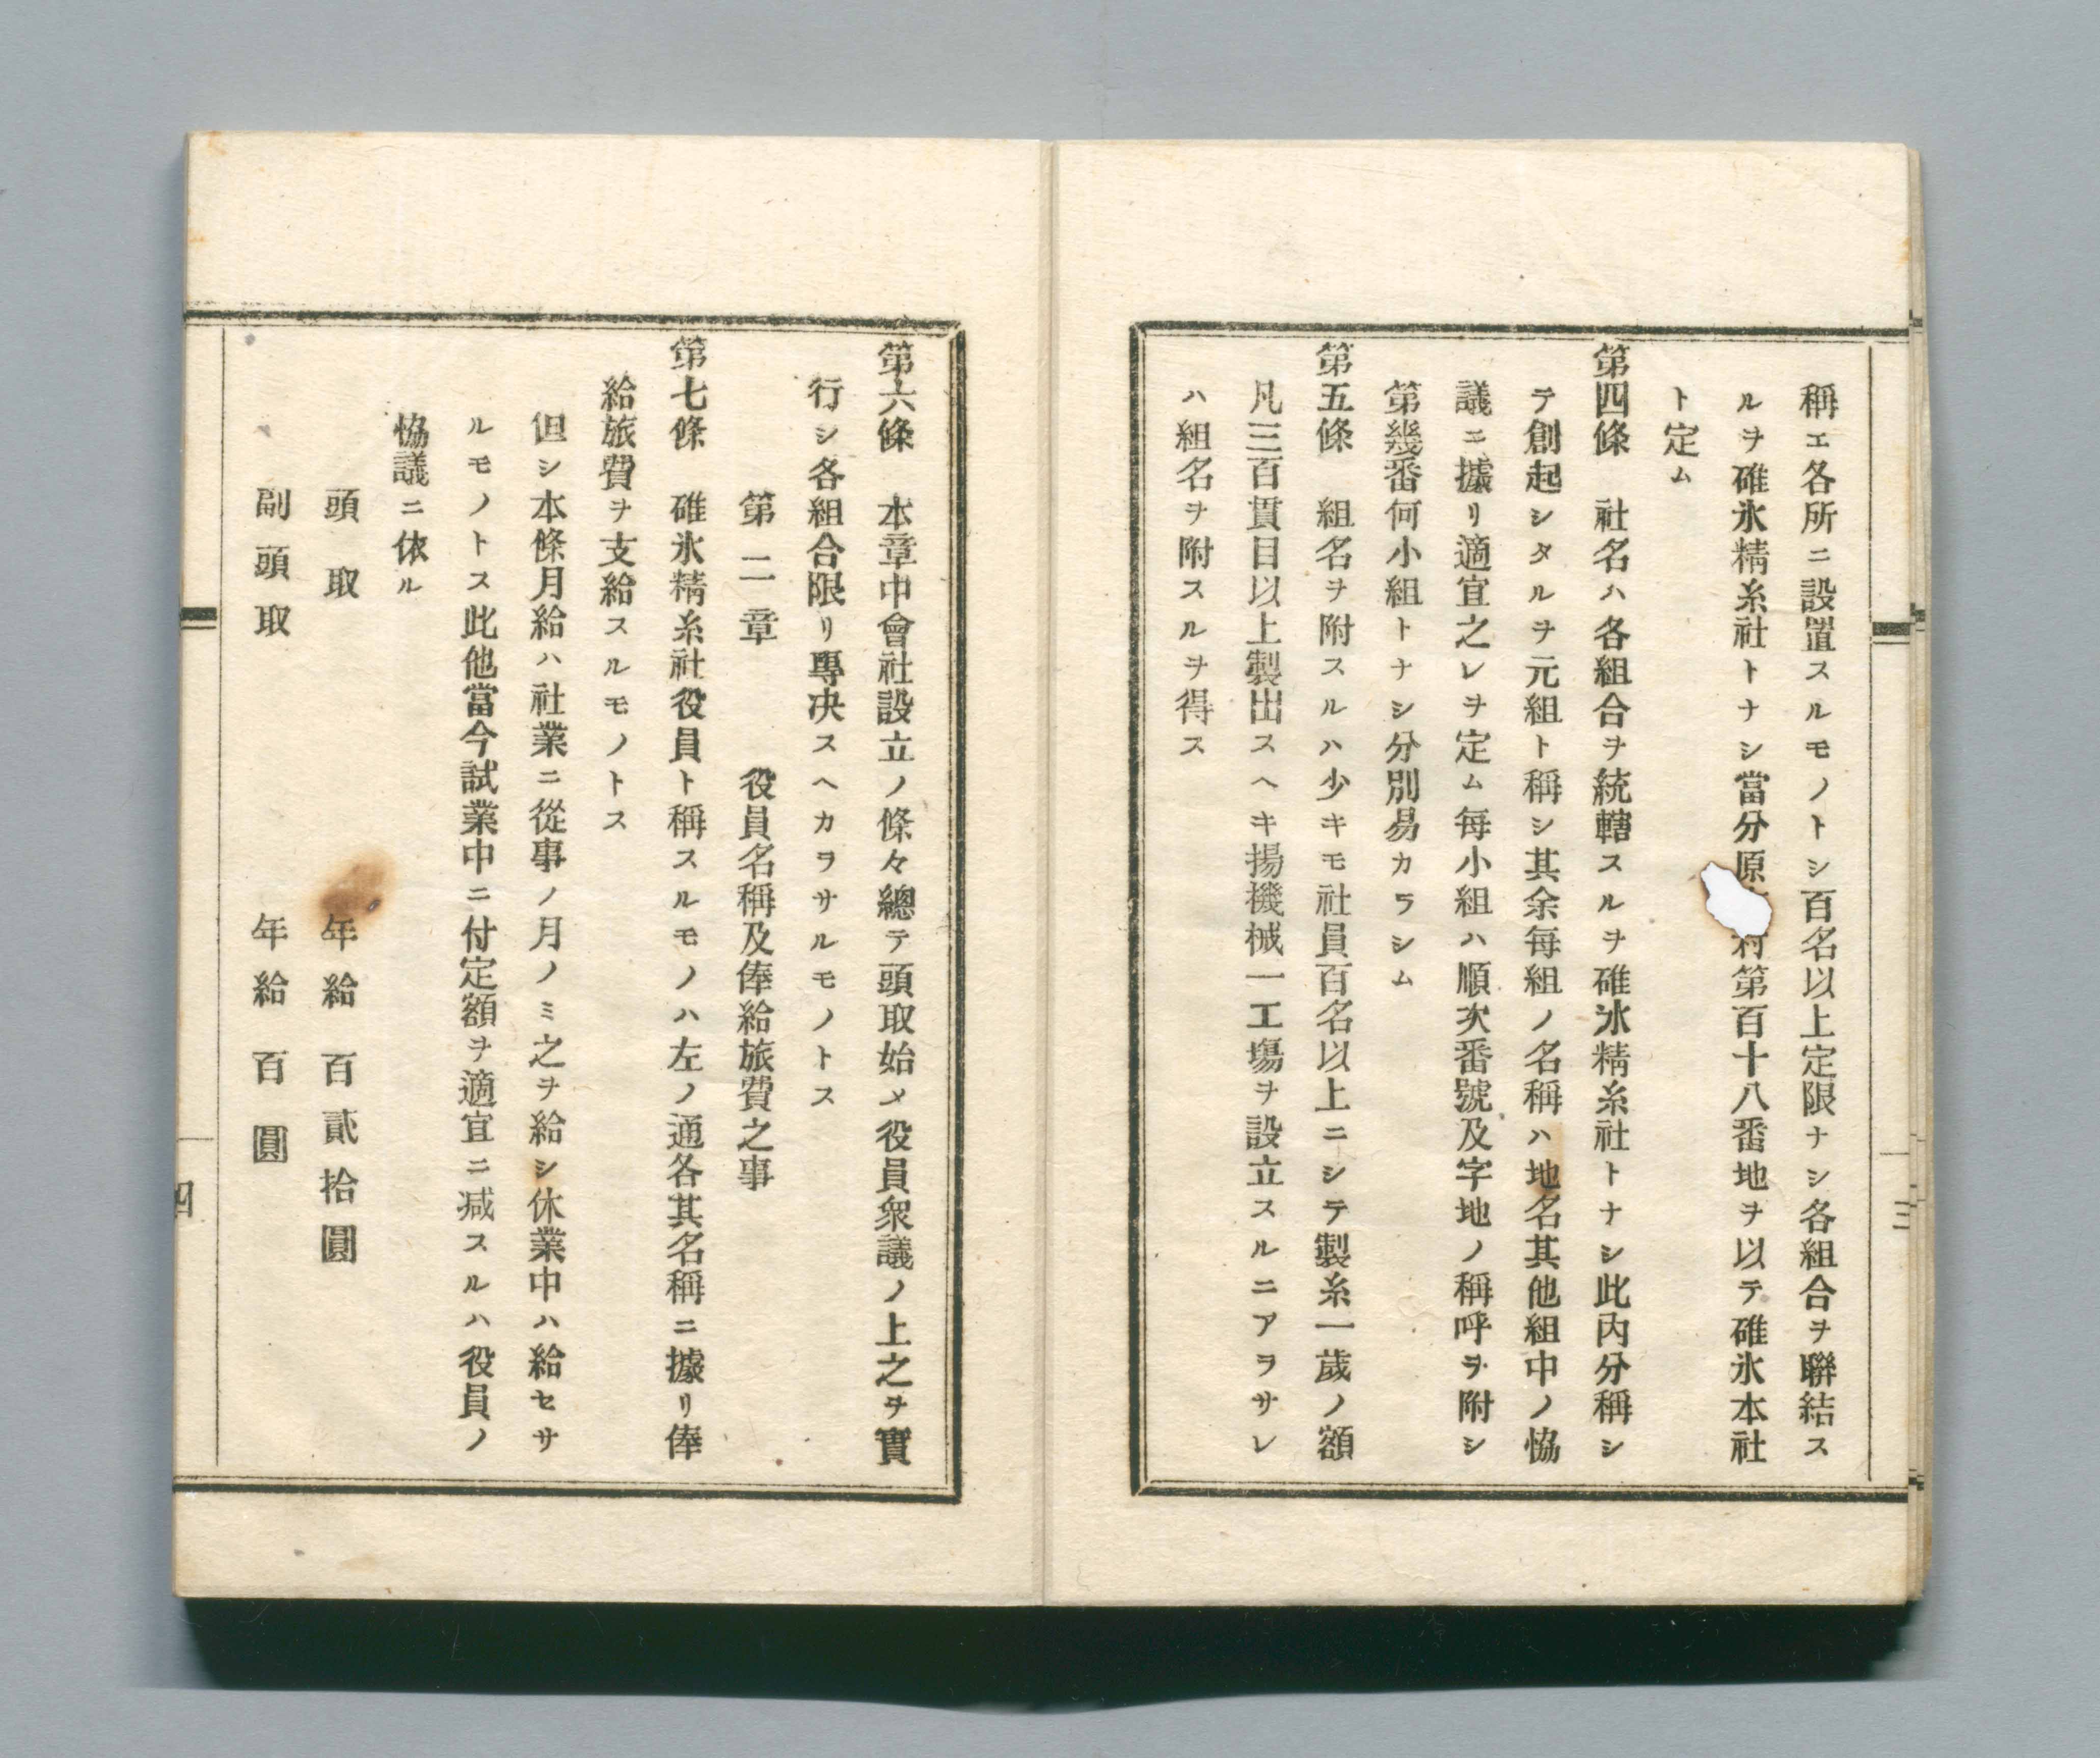 稱エ各所ニ設置スルモノトシ百名以上定限ナシ各組合ヲ聯結ス
ルヲ碓氷精糸社トナシ當分原村第百十八番地ヲ以テ碓氷本社
ト定ム
第四條　社名ハ各組合ヲ統轄スルヲ碓氷精糸社トナシ此内分稱シ
テ創起シタルヲ元組ト稱シ其余每組ノ名稱ハ地名其他組中ノ恊
議ニ據リ適宜之レヲ定ム每小組ハ順次番號及字地ノ稱呼ヲ附シ
第幾番何小組トナシ分別易カラシム
第五條　組名ヲ附スルハ少キモ社員百名以上ニシテ製糸一歲ノ額
凡三百貫目以上製出スヘキ揚機械一工塲ヲ設立スルニアラサレ
ハ組名ヲ附スルヲ得ス
三
第六條　本章中會社設立ノ條々總テ頭取始メ役員衆議ノ上之ヲ實
行シ各組合限リ專决スヘカラサルモノトス
第二章　役員名稱及俸給旅費之事
第七條　碓氷精糸社役員ト稱スルモノハ左ノ通各其名稱ニ據リ俸
給旅費ヲ支給スルモノトス
但シ本條月給ハ社業ニ從事ノ月ノミ之ヲ給シ休業中ハ給セサ
ルモノトス此他當今試業中ニ付定額ヲ適宜ニ减スルハ役員ノ
恊議ニ依ル
頭取　年給　百貳拾圓
副頭取　年給　百圓
四